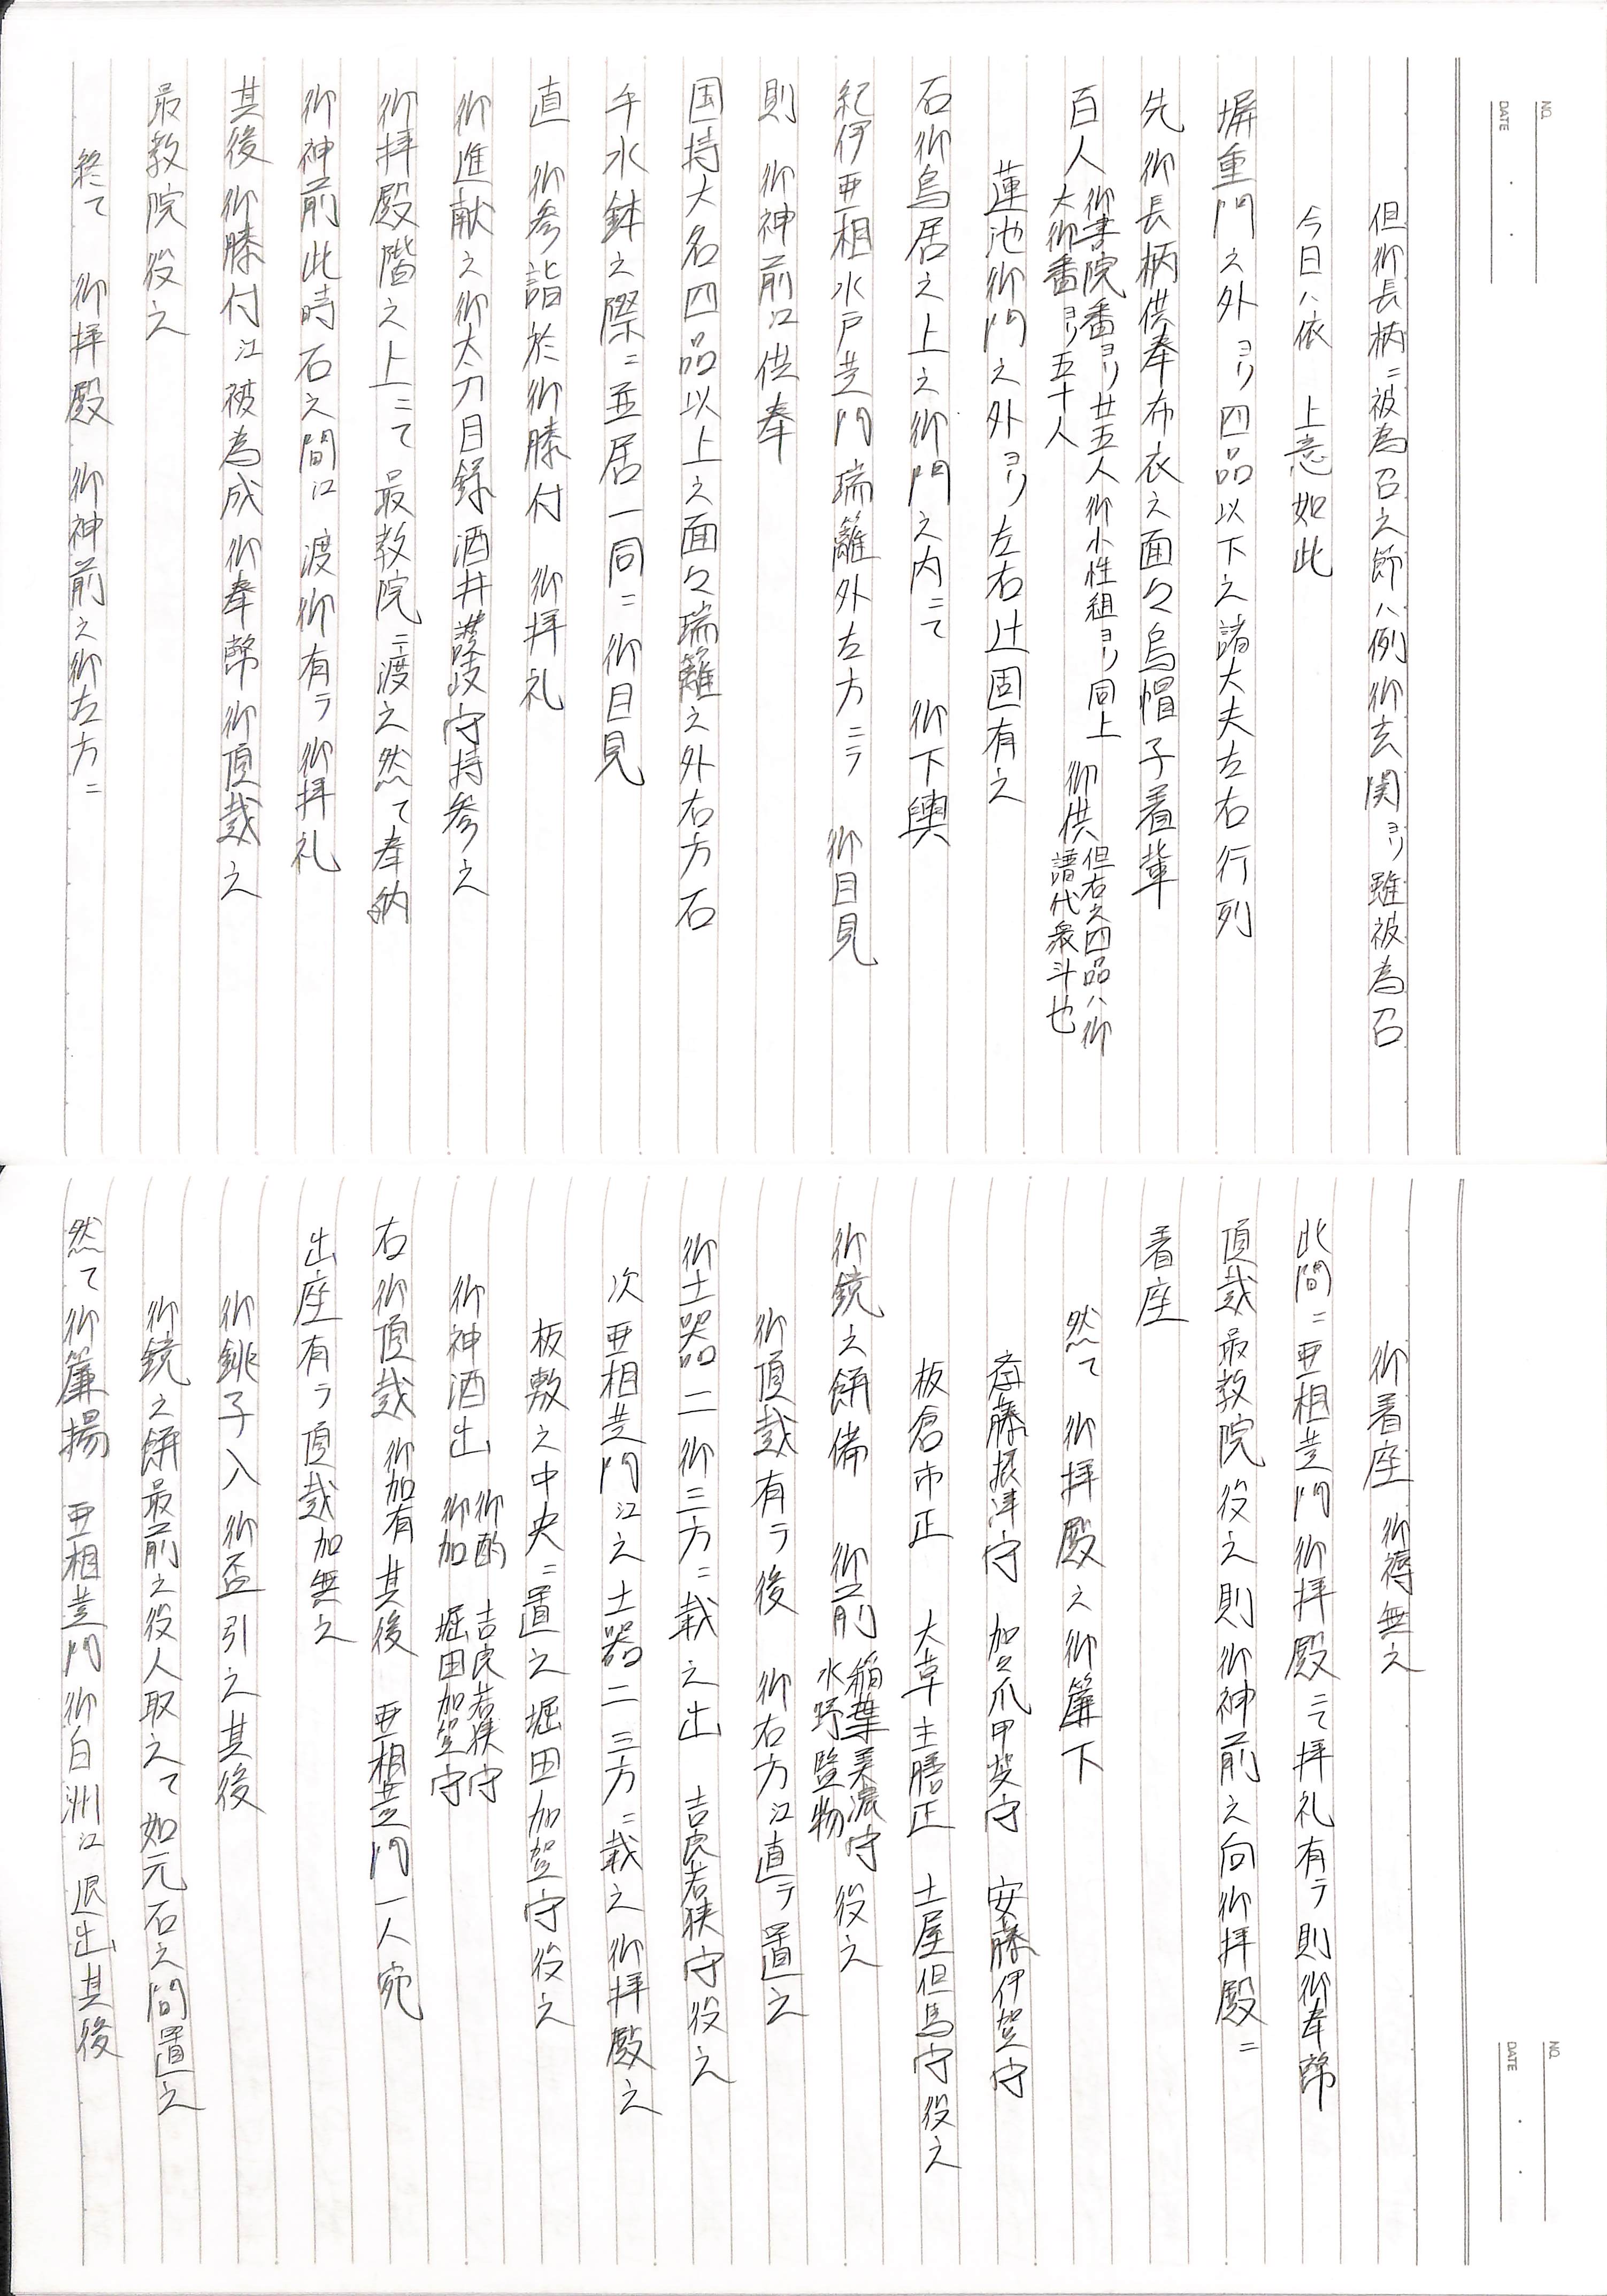 NO.
DATE
但御長柄ニ被為召之節ハ例御玄関ヨリ雖被為召
今日ハ依　上意如此
塀重門之外ヨリ四品以下之諸大夫左右行列
先御長柄供奉布衣之面々烏帽子着輩
百人　御書院番ヨリ廿五人御小性組ヨリ同上
大御番ヨリ五十人
御供　但右之四品ハ御
譜代衆斗也
蓮池御門之外ヨリ左右辻固有之
石御鳥居之上之御門之内ニて　御下輿
紀伊亜相水戸黄門瑞籬外左方ニテ　御目見
則　御神前江供奉
国持大名四品以上之面々瑞籬之外右方石
手水鉢之際ニ並居一同ニ御目見
直　御参詣於御膝付　御拝礼
御進献之御太刀目録酒井讃岐守持参之
御拝殿階之上ニて最教院ニ渡之然て奉納
御神前此時石之間江　渡御有テ御拝礼
其後御膝付江被為成御奉幣御頂戴之
最教院役之
終て　御拝殿　御神前之御左方ニ
NO.
DATE
御着座　御褥無之
此間ニ亜相黄門御拝殿ニて拝礼有テ則御奉幣
頂戴最教院役之則御神前之向御拝殿ニ
着座
然て　御拝殿之御簾下
斎藤摂津守　加々爪甲斐守　安藤伊賀守
板倉市正　大草主膳正　土屋但馬守役之
御鏡之餅備　御前　稲葉美濃守
水野監物　役之
御頂戴有テ後　御右方江直テ置之
御土器二御三方ニ載之出　吉良若狭守役之
次亜相黄門江之土器二三方ニ載之御拝殿之
板敷之中央ニ置之堀田加賀守役之
御神酒出　御酌　吉良若狭守
御加　堀田加賀守
右御頂戴　御加有其後　亜相黄門一人宛
出座有テ頂戴加無之
御銚子入御盃引之其後
御鏡之餅最前之役人取之て如元石之間置之
然て御簾揚　亜相黄門御白洲江退出其後